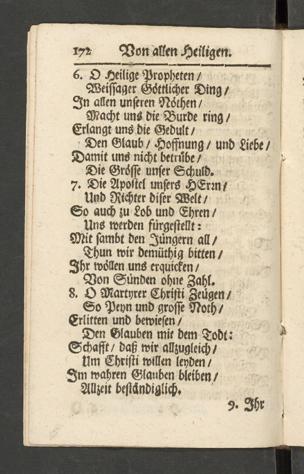 172 Von allen Heiligen.
6. O Heilige Propheten /
Weissager Göttlicher Ding /
In allen unseren Nöthen /
Macht uns die Burde ring /
Erlangt uns die Gedult /
Den Glaub / Hoffnung / und Liebe /
Damit uns nicht betrübe /
Die Grösse unser Schuld.
7. Die Apostel unsers HErrn /
Und Richter diser Welt /
So auch zu Lob und Ehren /
Uns werden fürgestellt :
Mit sambt den Jüngern all /
Thun wir demüthig bitten /
Ihr wöllen uns erquicken /
Von Sünden ohne Zahl.
8. O Martyrer Christi Zeugen /
So Peyn und grosse Noth /
Erlitten und bewiesen /
Den Glauben mit dem Todt:
Schafft / daß wir allzugleich /
Um Christi willen leyden /
Im wahren Glauben bleiben /
Allzeit beständiglich.
9. Ihr